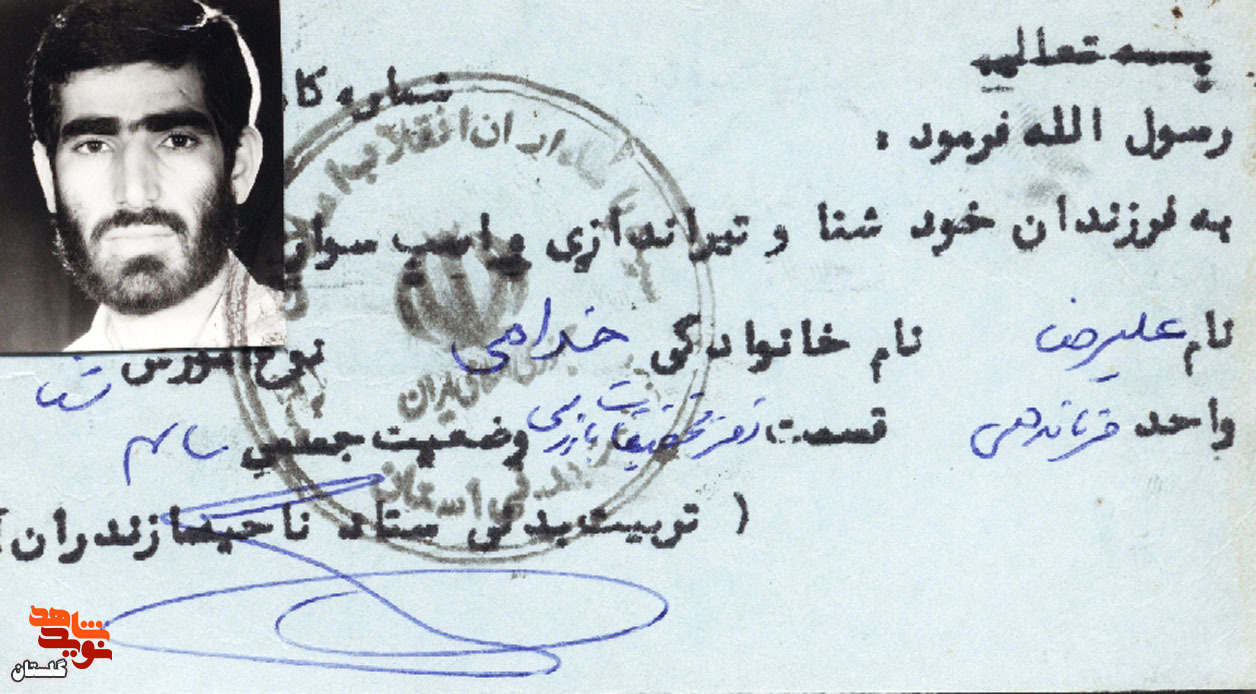 بسمه تعالی
شماره کا
رسول الله فرمود :
به فرزندان خود شنا و تیراندازی و اسب سوار
نام علیرضا نام خانوادگی خدامی نوع آموزش شنا
واحد فرماندهی قسمت دفتر تحقیقات بازرسی وضعیت جسمی سالم
( تربیت بدنی ستاد ناحیه مازندران )
ایران
استان
شاهد
نوید
گلستان